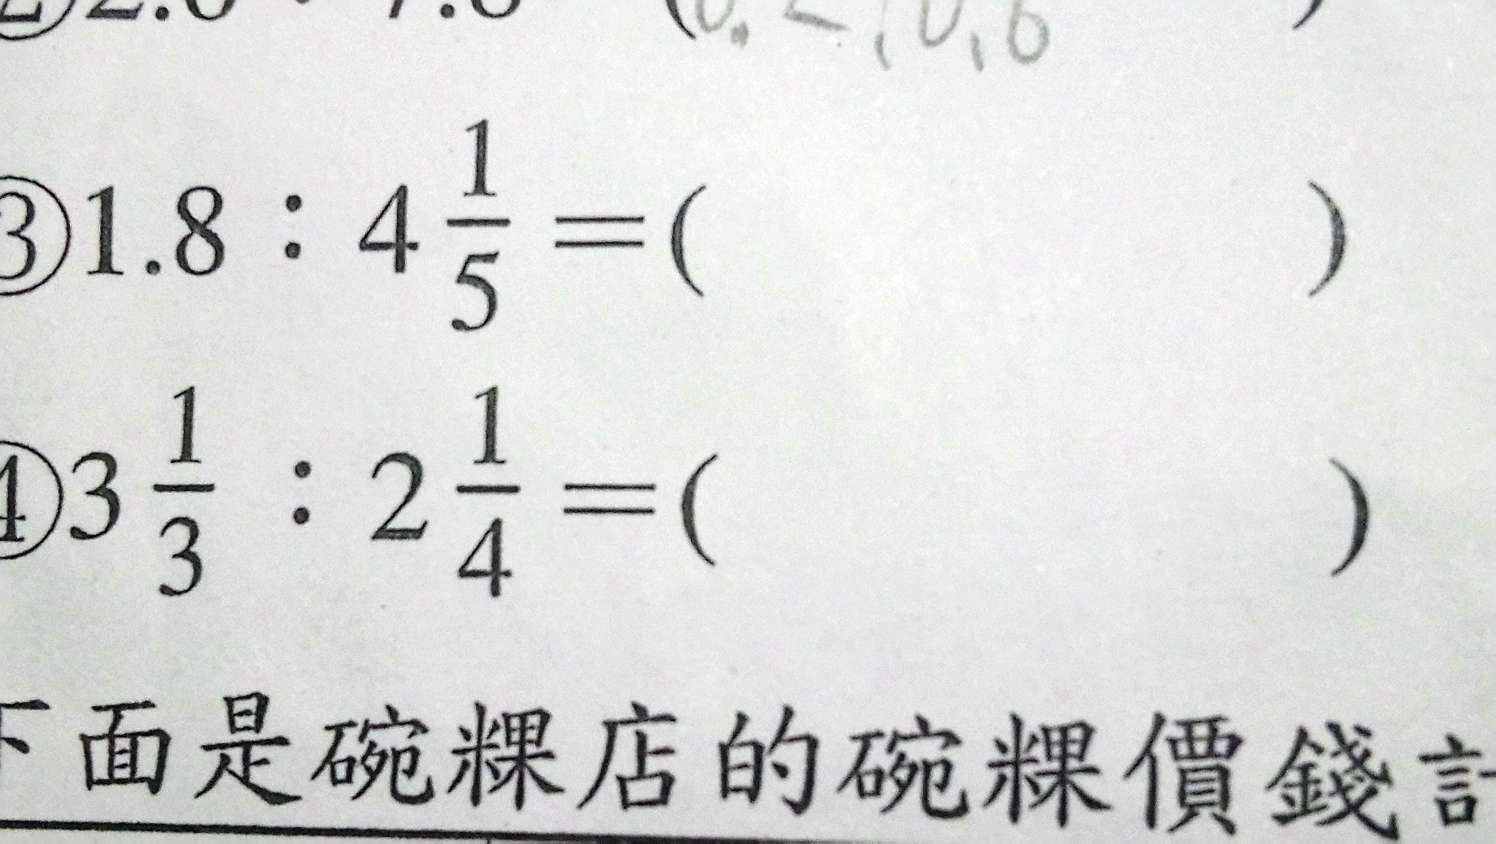 ③1.8：4 1/5＝(        )
④3 1/3：2 1/4＝(        )
下面是碗粿店的碗粿價錢計